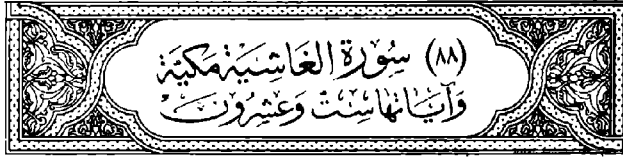 (٨٨) سُورَةُ الغَاشِيَةِ مَكِيَّة
وَآيَانُهَا سِتٌ وَعِشْرُونَ